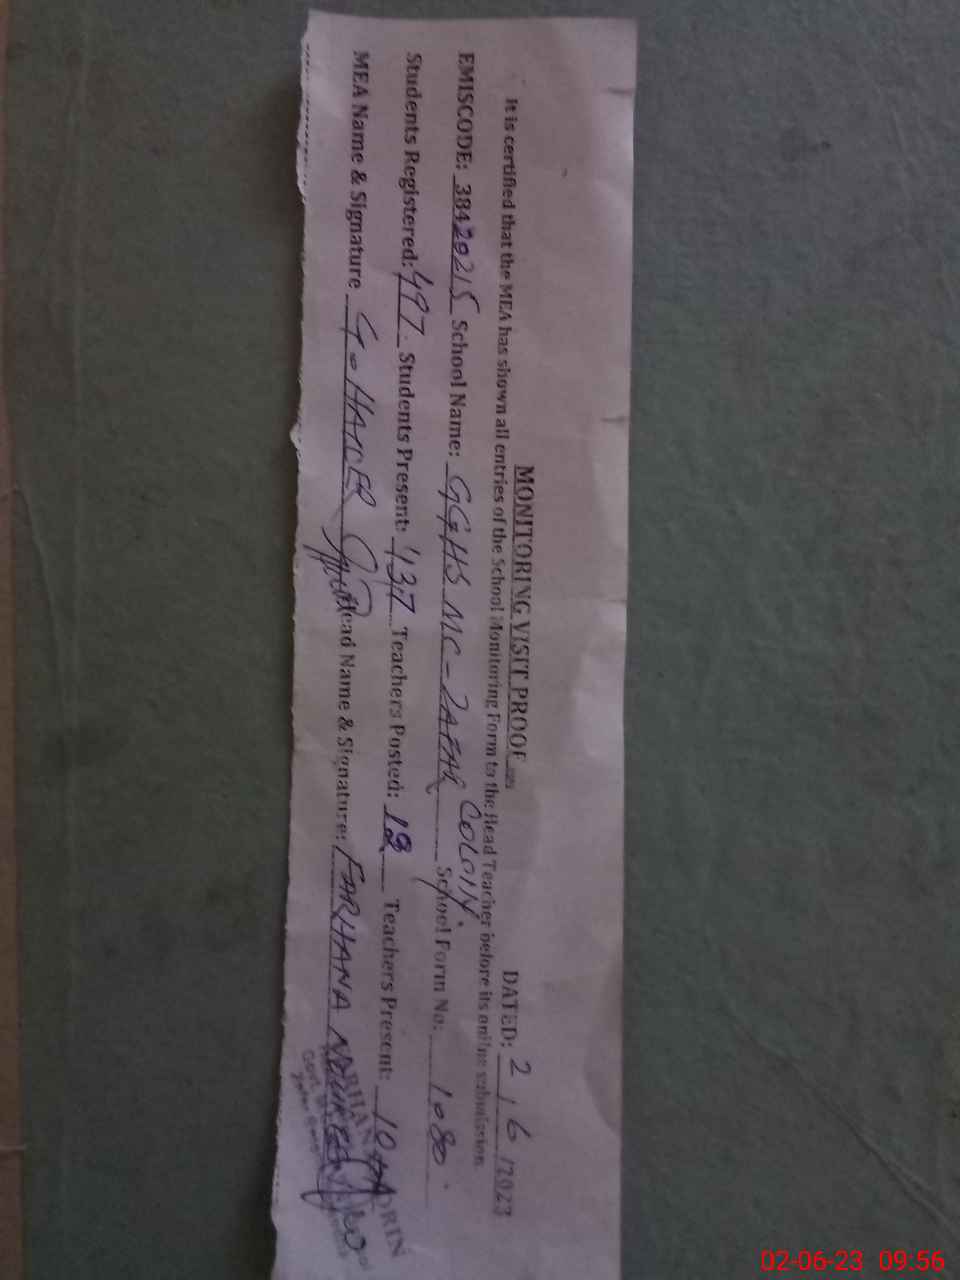 MONITORING VISIT PROOF
DATED: 2/6/2023
It is certified that the MEA has shown all entries of the School Monitoring Form to the Head Teacher before its online submission
EMISCODE: 38429215 School Name: GGHS MC- COLONY. School Form No: 1080
Students Registered: 497 Students Present: 137 Teachers Posted: 12 Teachers Present: 10
MEA Name & Signature G. HAIDER Head Name & Signature: FARHANA
02-06-23 09:56